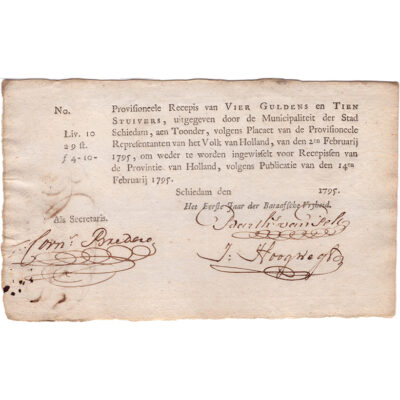 No.
Liv. 10
29 st.
f 4-10-
Provisioneele Recepis van VIER GULDENS en TIEN
STUIVERS, uitgegeven door de Municipaliteit der Stad
Schiedam, aen Toonder, volgens Placaet van de Provisioneele
Representanten van het Volk van Holland, van den 2den Februarij
1795, om weder te worden ingewisselt voor Recepissen van
de Provintie van Holland, volgens Publicatie van den 14den
Februarij 1795.
Schiedam den 1795.
Het Eerste Jaar der Bataafsche Vryheid.
Als Secretaris.
Corn.s Bredero
J: Hoogwegh